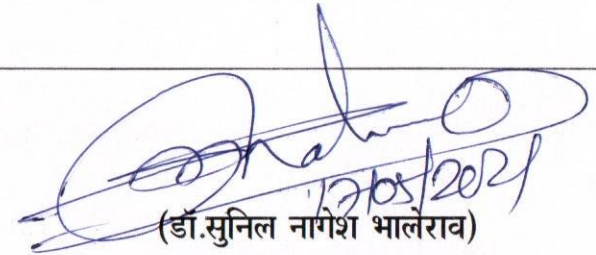 17/05/2021
(डॉ.सुनिल नागेश भालेराव)